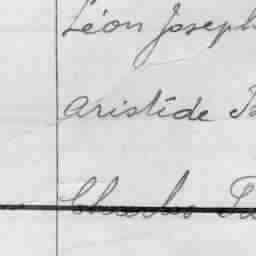 Léon Joseph
Aristide
Charles